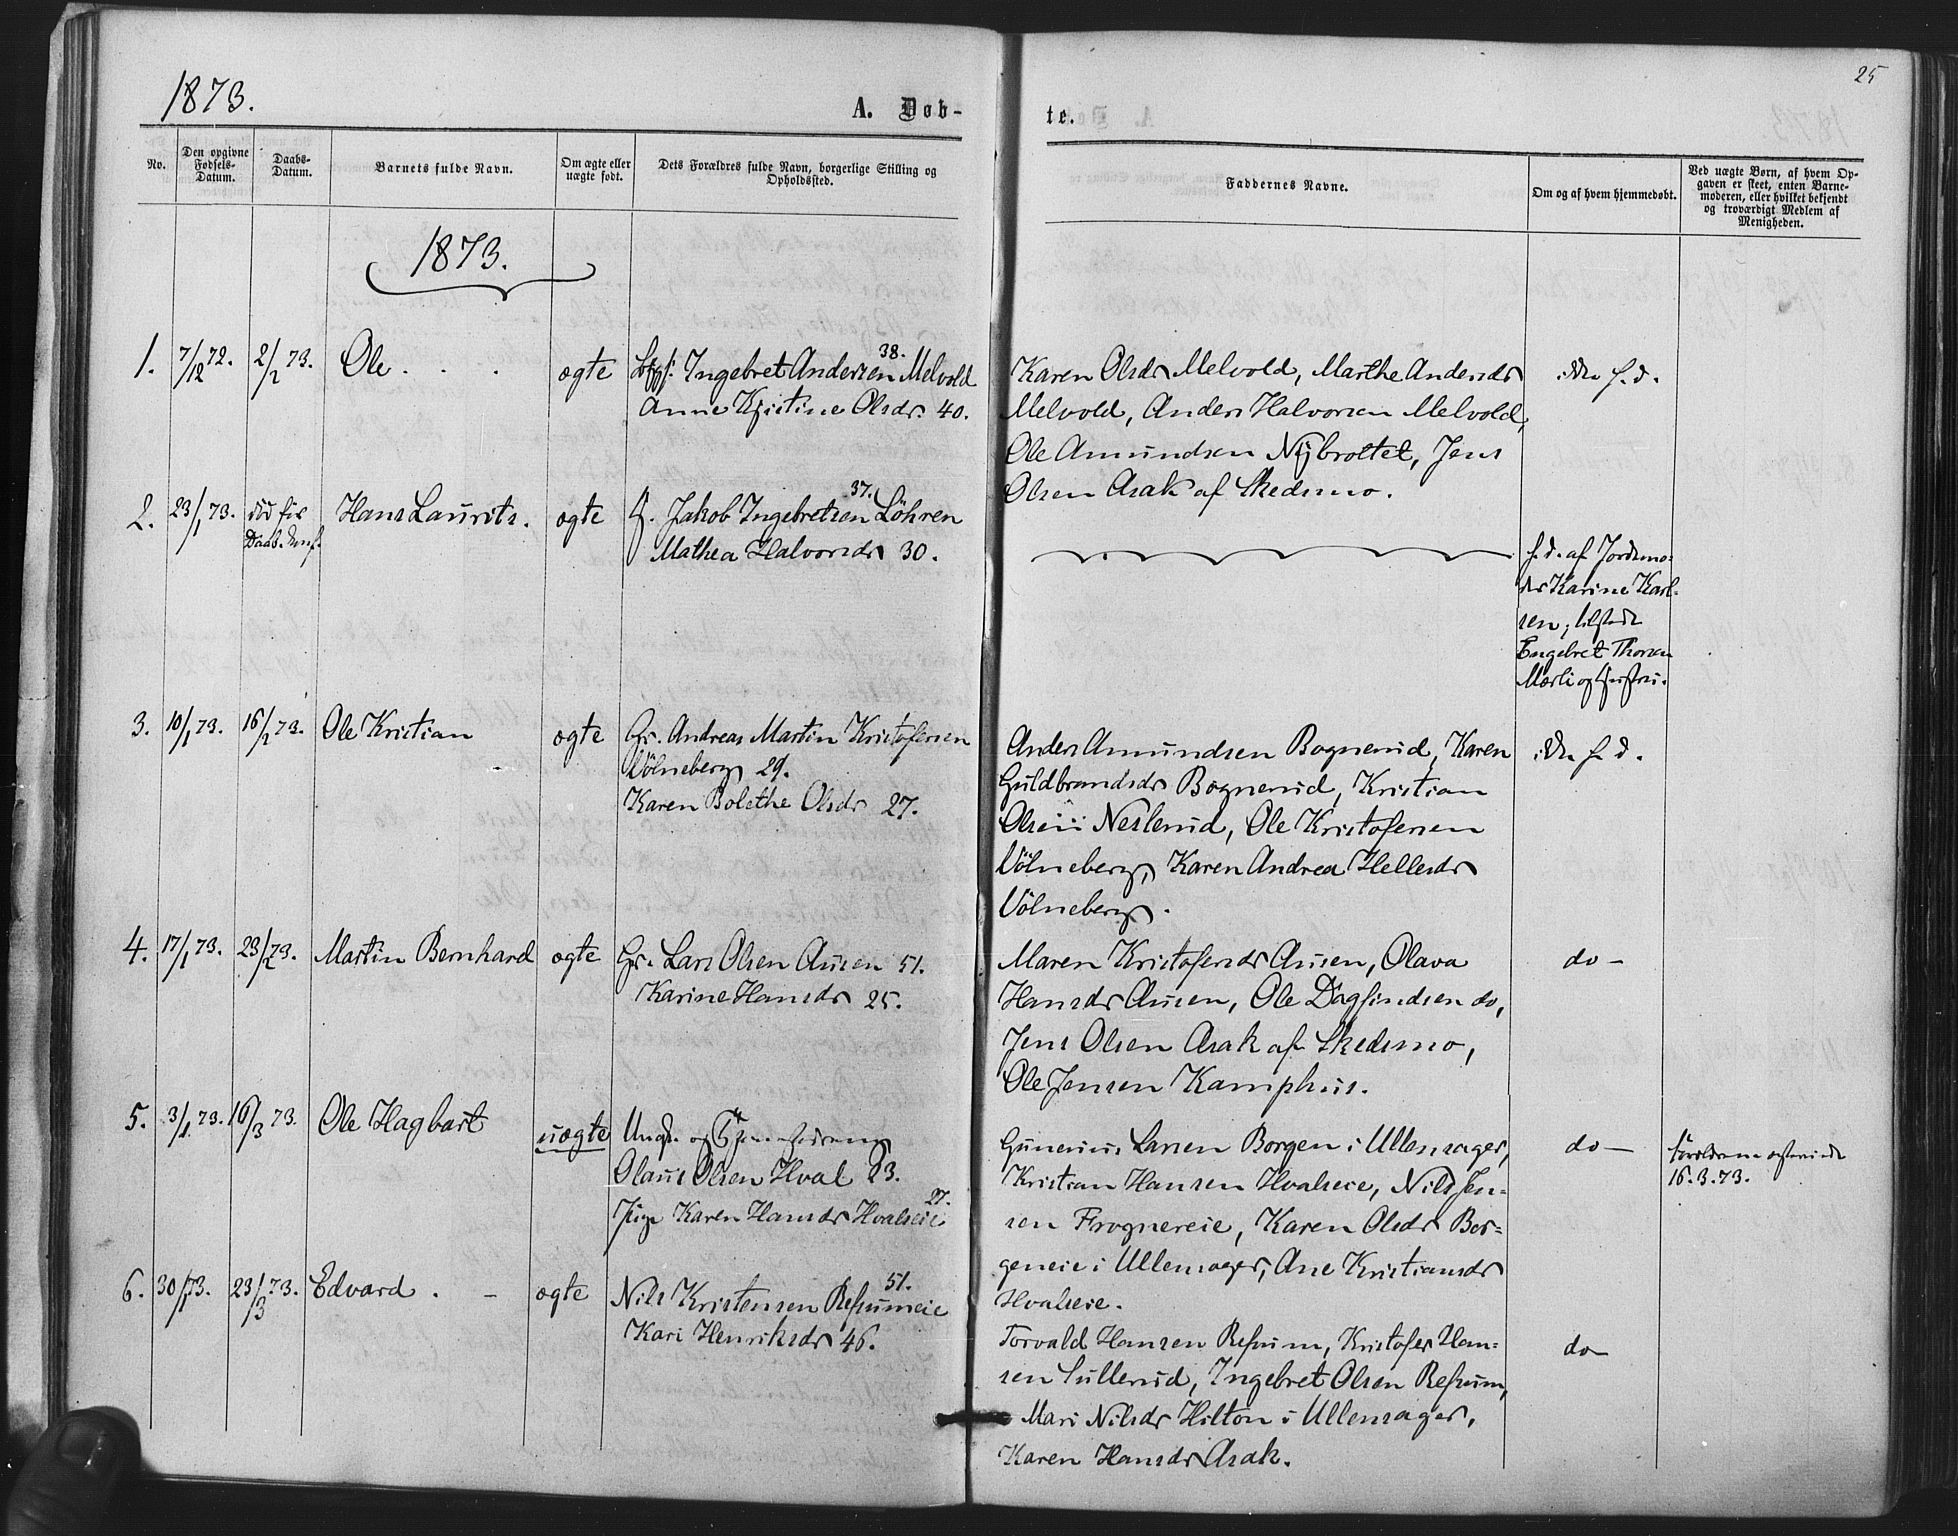 1873.
A. Døb-
te.
25
No.
Den opgivne Fødsels-Datum.
Daabs-Datum.
Barnets fulde Navn.
Om ægte eller uægte født.
Dets Forældres fulde Navn, borgerlige Stilling og Opholdsted.
Faddernes Navne.
Om og af hvem hjemmedøbt.
Ved uægte Børn, af hvem Opgaven er skeet, enten Barnemoderen, eller hvilket bekjendt og troværdigt Medlem af Menigheden.
1873.
1. 7/12 72. 2/2 73. Ole . . . ægte Ingebret Andersen Melvold 38.
Anne Kristine Olsdr. 40.
Karen Olsdr Melvold, Marthe Andersdr
Melvold, Anders Halvorsen Melvold,
Ole Amundsen Nybrottet, Jens
Olsen Asak af Skedsmo.
ikke h. d.
2. 23/1 73. død før
Daab.
Hans Laurits. ægte G. Jakob Ingebretsen Löhren 37.
Mathea Halvorsdr 30.
h. d. af Jordemo-
der Karine Karl-
sen, tilstede
Engebret Thorsen
Mærli og Hustru.
3. 10/1 73. 16/2 73. Ole Kristian ægte Gr. Andreas Martin Kristofersen
Völneberg 29.
Karen Bolethe Olsdr 27.
Anders Amundsen Bognerud, Karen
Guldbrandsdr Bognerud, Kristian
Olsen Neslerud, Ole Kristofersen
Völneberg, Karen Andrea Hellesdr
Völneberg.
ikke h. d.
4. 17/1 73. 23/2 73. Martin Bernhard ægte Gr. Lars Olsen Ausen 51.
Karine Hansdr 25.
Maren Kristofersdr Ausen, Olava
Hansdr Ausen, Ole Dagfindsen do,
Jens Olsen Asak af Skedsmo,
Ole Jensen Kamphus.
do —
5. 3/1 73. 16/3 73. Ole Hagbart uægte Ungk. og
Olaus Olsen Hval 23.
Pige Karen Hansdr Hvalseie 27.
Gunerius Larsen Borgen i Ullensager,
Kristian Hansen Hvalseie, Nils Jen-
sen Frognereie, Karen Olsdr Bor-
geneie i Ullensager, Ane Kristiansdr
Hvalseie.
do —
Forældrene
16.3.73.
6. 30/1 73. 23/3 73. Edvard . - ægte Nils Kristensen Refsumeie 51.
Kari Henriksdr 46.
Torvald Hansen Refsum, Kristofer Han-
sen Sullerud, Ingebret Olsen Refsum,
Mari Nilsdr Hilton i Ullensager,
Karen Hansdr Asak.
do —